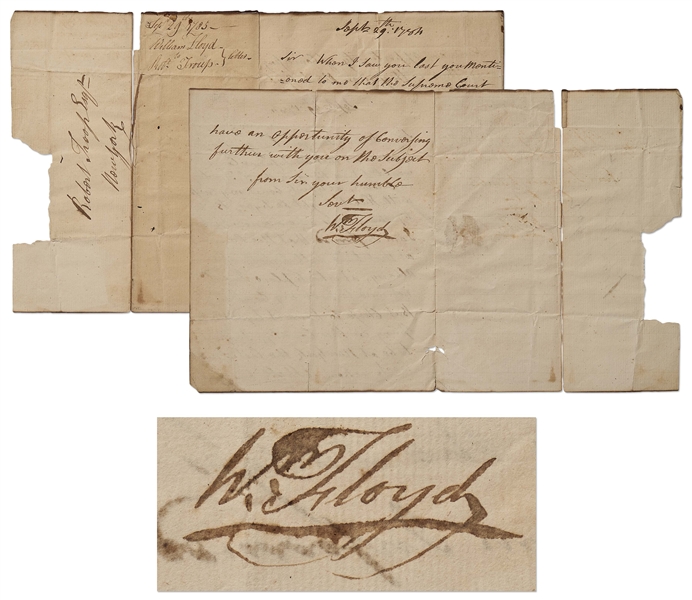 Sep 29 1785
William Floyd
Robt Troup } Letter
Robert Troop Esqr
Newyork
Septr 29th 1784
Sir - When I saw you last you Menti-
oned to me that the Supreme Court
have an opportunity of Conversing
further with you on the Subject
from Sir your humble
Servt
Wm Floyd
Wm Floyd